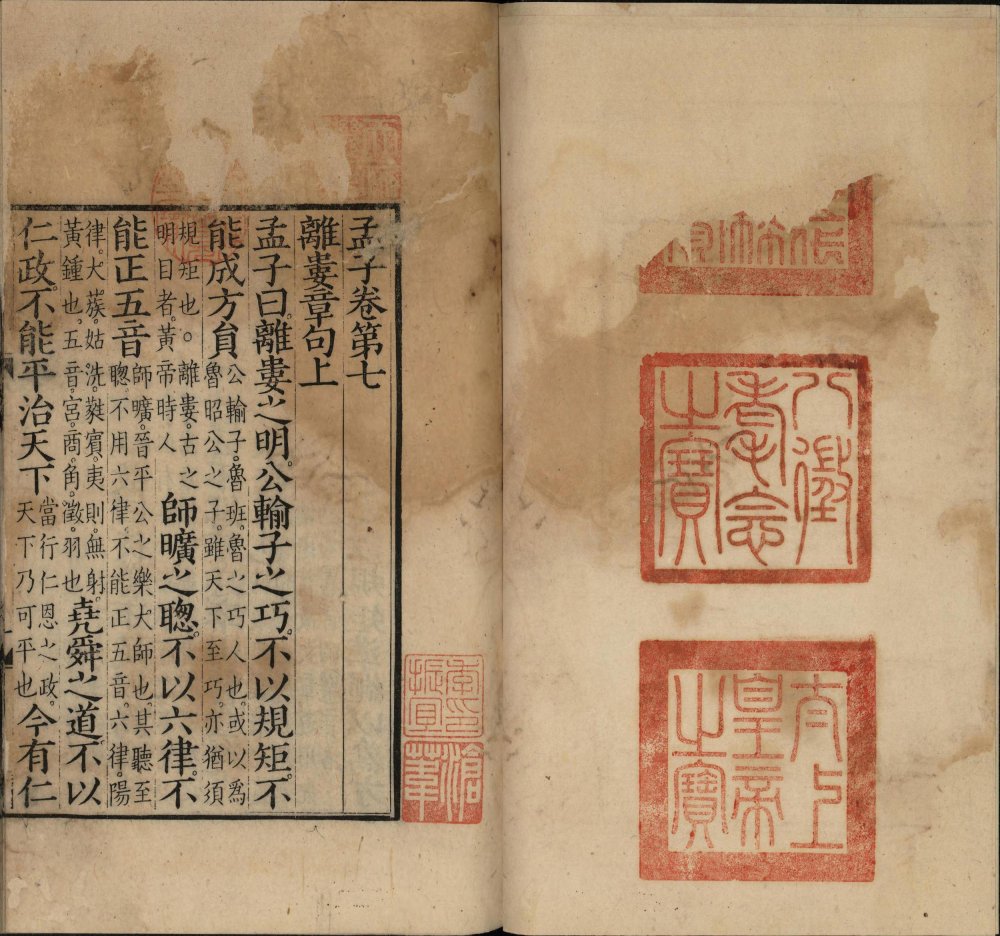 八徵耄念之寶
太上皇帝之寶
季印振宜
滄葦
孟子卷第七
離婁章句上
孟子曰。離婁之明。公輸子之巧。不以規矩。不
能成方員公輸子。魯班。魯之巧人也。或以爲魯昭公之子。雖天下至巧。亦猶須
規矩也。○離婁。古之明目者。黃帝時人師曠之聰。不以六律。不
能正五音師曠。晉平公之樂大師也。其聽至聰。不用六律。不能正五音。六律。陽
律。大蔟。姑洗。蕤賓。夷則。無射。黃鍾也。五音。宮。商。角。徵。羽也堯舜之道。不以
仁政。不能平治天下當行仁恩之政。天下乃可平也今有仁